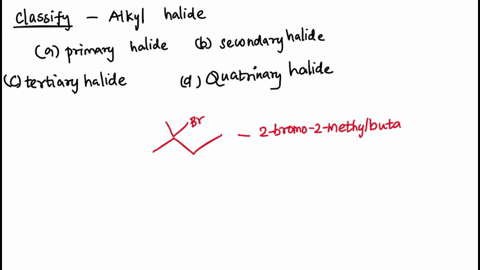 Classify - Alkyl halide
(a) primary halide (b) secondary halide
(c) tertiary halide (d) Quatrinary halide
Br
- 2-bromo-2-methylbuta